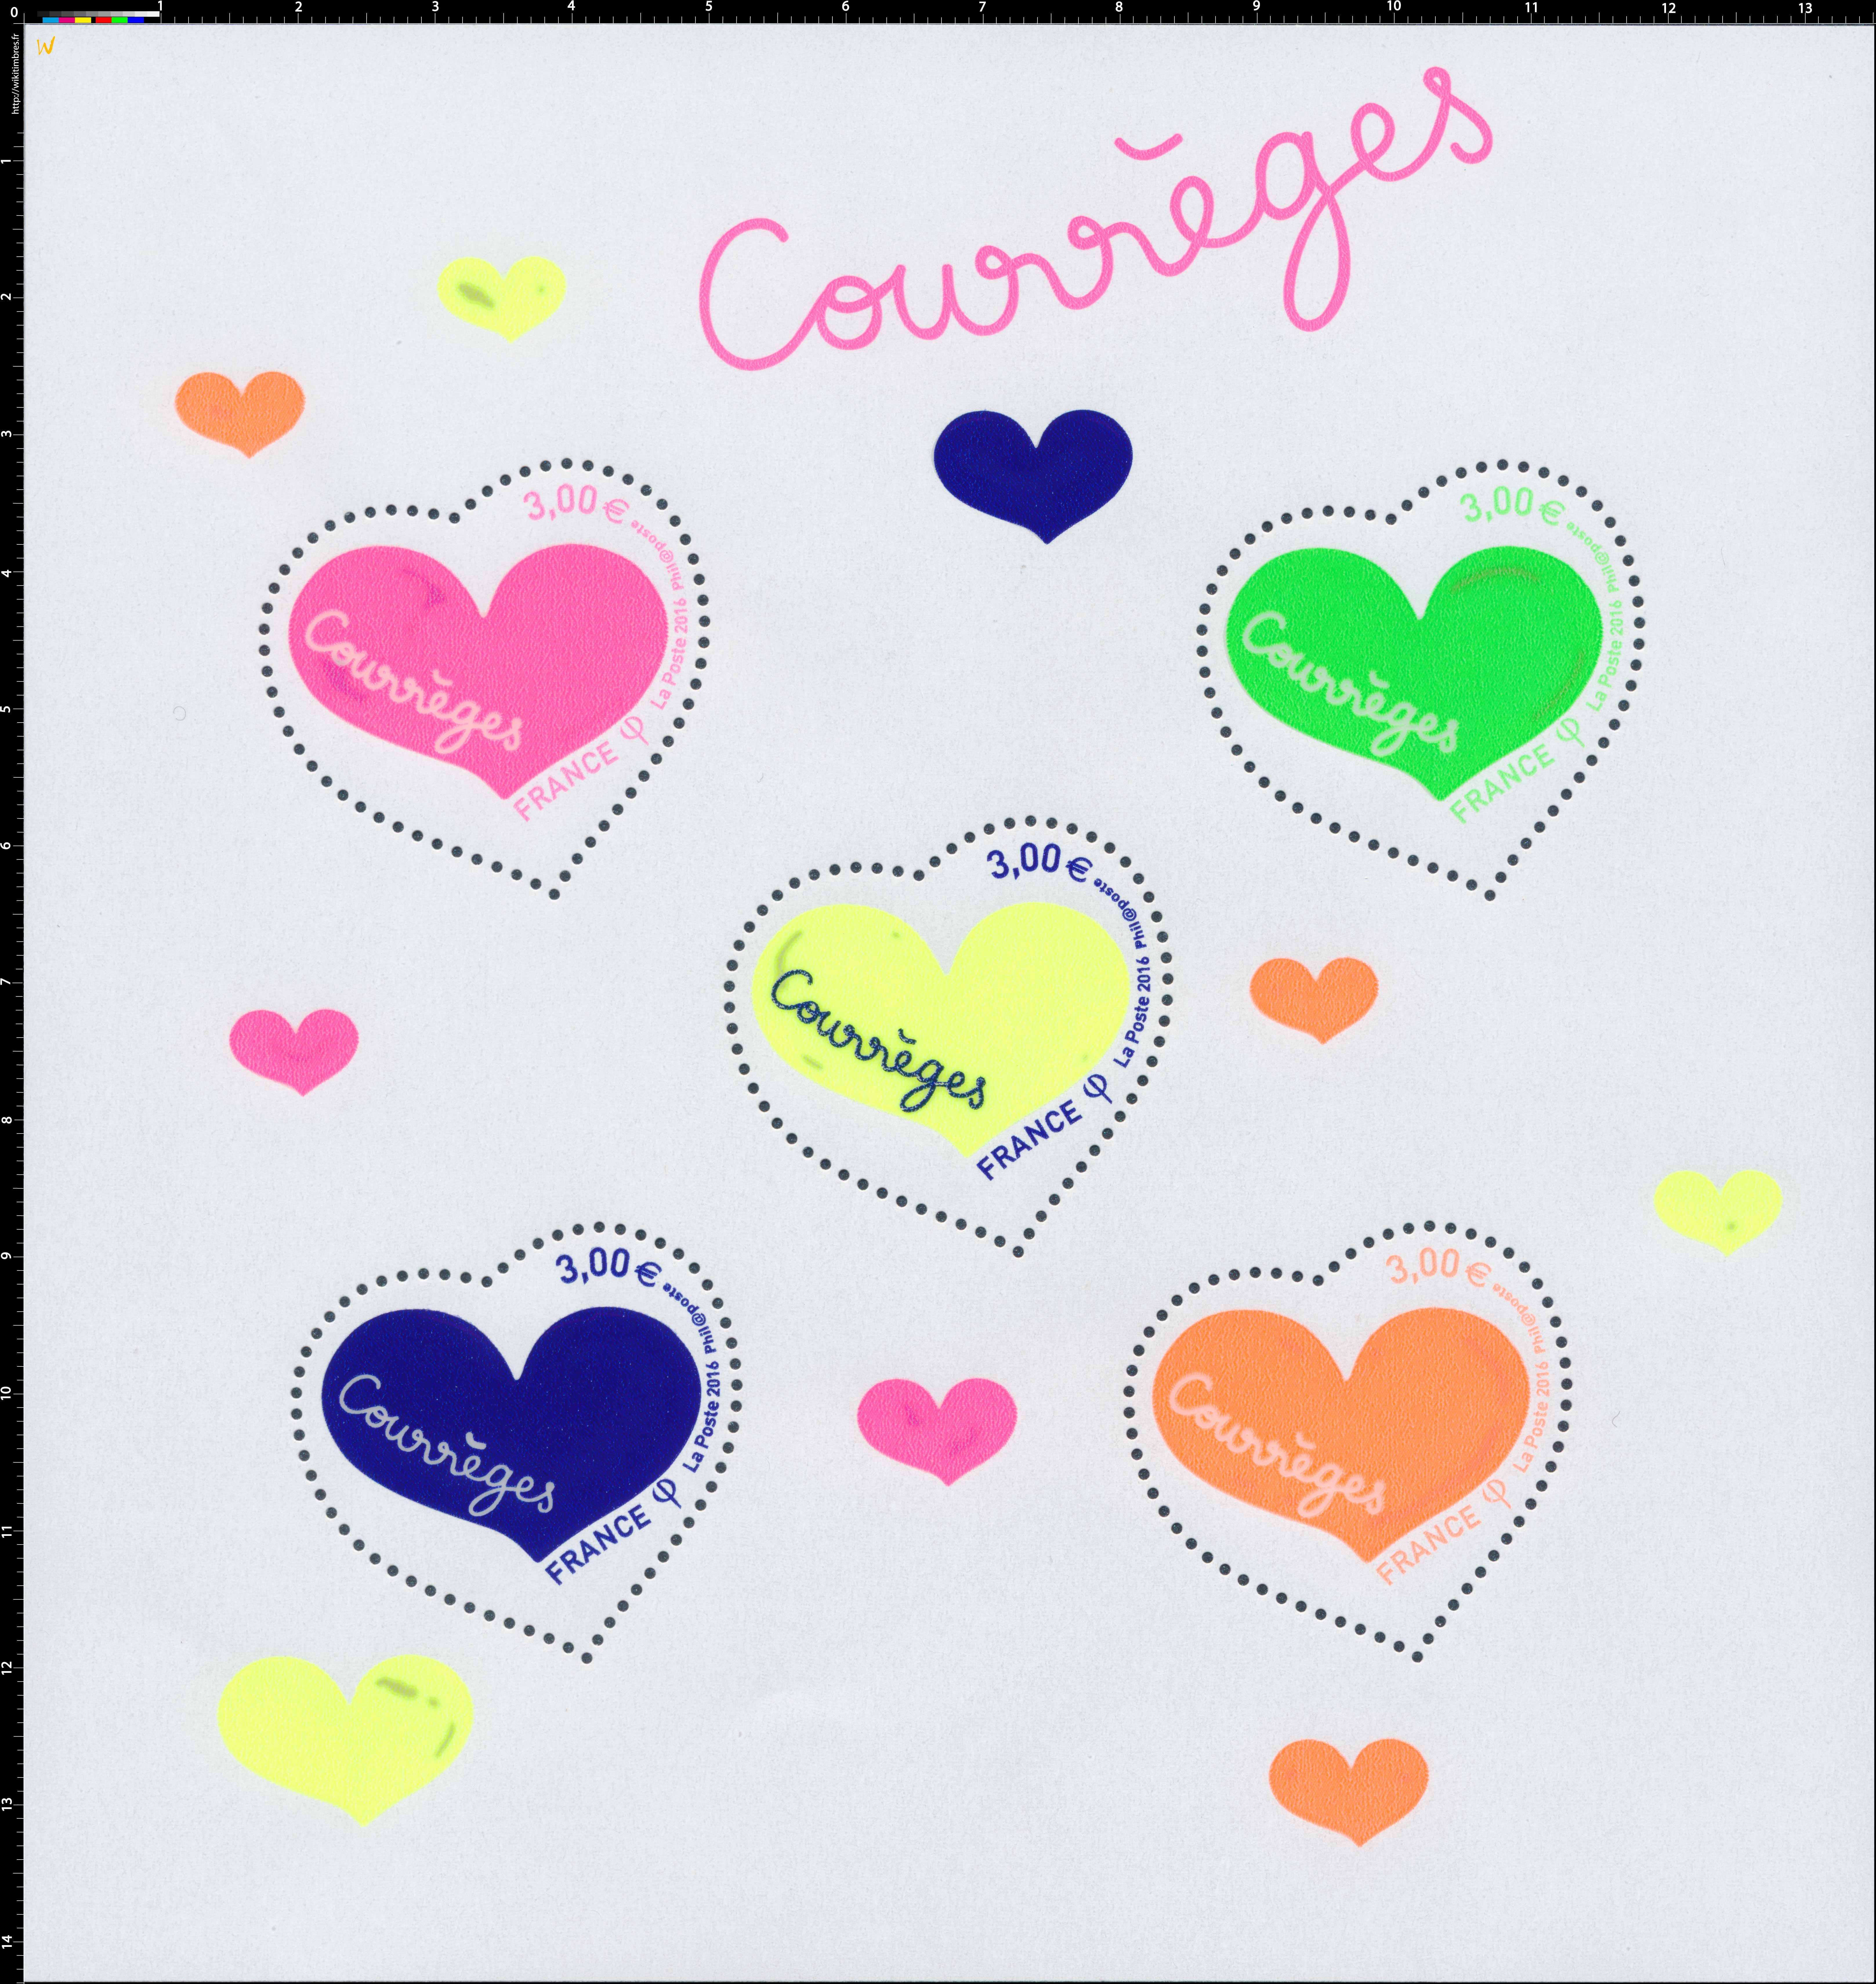 0 1 2 3 4 5 6 7 8 9 10 11 12 13
http://wikitimbres.fr
W
1
2
3
4
5
6
7
8
9
10
11
12
13
14
Courrĕges
3,00 €
Phil@poste
La Poste 2016
Courrĕges
FRANCE φ
3,00 €
Phil@poste
La Poste 2016
Courrĕges
FRANCE φ
3,00 €
Phil@poste
La Poste 2016
Courrĕges
FRANCE φ
3,00 €
Phil@poste
La Poste 2016
Courrĕges
FRANCE φ
3,00 €
Phil@poste
La Poste 2016
Courrĕges
FRANCE φ